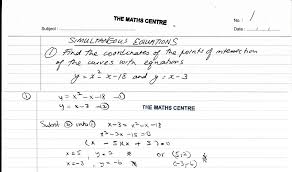 THE MATHS CENTRE
No.: 1
Subject: Date:
SIMULTANEOUS EQUATIONS
① Find the coordinates of the points of intersection
of the curves with equations
y = x² - x - 18 and y = x - 3
① y = x² - x - 18 —①
y = x - 3 —②
THE MATHS CENTRE
Subst ② into ① x - 3 = x² - x - 18
x² - 2x - 15 = 0
(x - 5)(x + 3) = 0
x = 5, y = 2 or (5, 2)
x = -3, y = -6 (-3, -6)